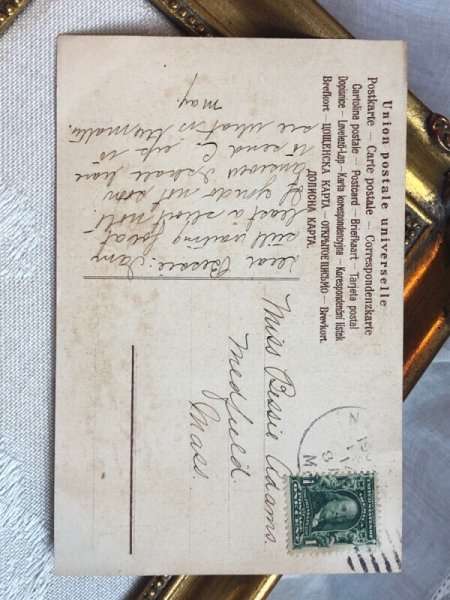 Union postale universelle
Postkarte — Carte postale — Correspondenzkarte
Cartolina postale — Postcard — Briefkaart — Tarjeta postal
Dopisnice - Levelezö-Lap - Karta korespondencyjna - Korespondenční lístek
Brefkort — ЦОЩЕНСКА КАРТА — ОТКРЫТОЕ ПИСЬМО — Brevkort.
ДОПИСНА КАРТА.
Dear Bessie: Am
still waiting for at
least a short note.
If you do not soon
I shall have
to send C. up to
see what is the matter.
May
Miss Bessie Adams.
Medfield.
Mass.